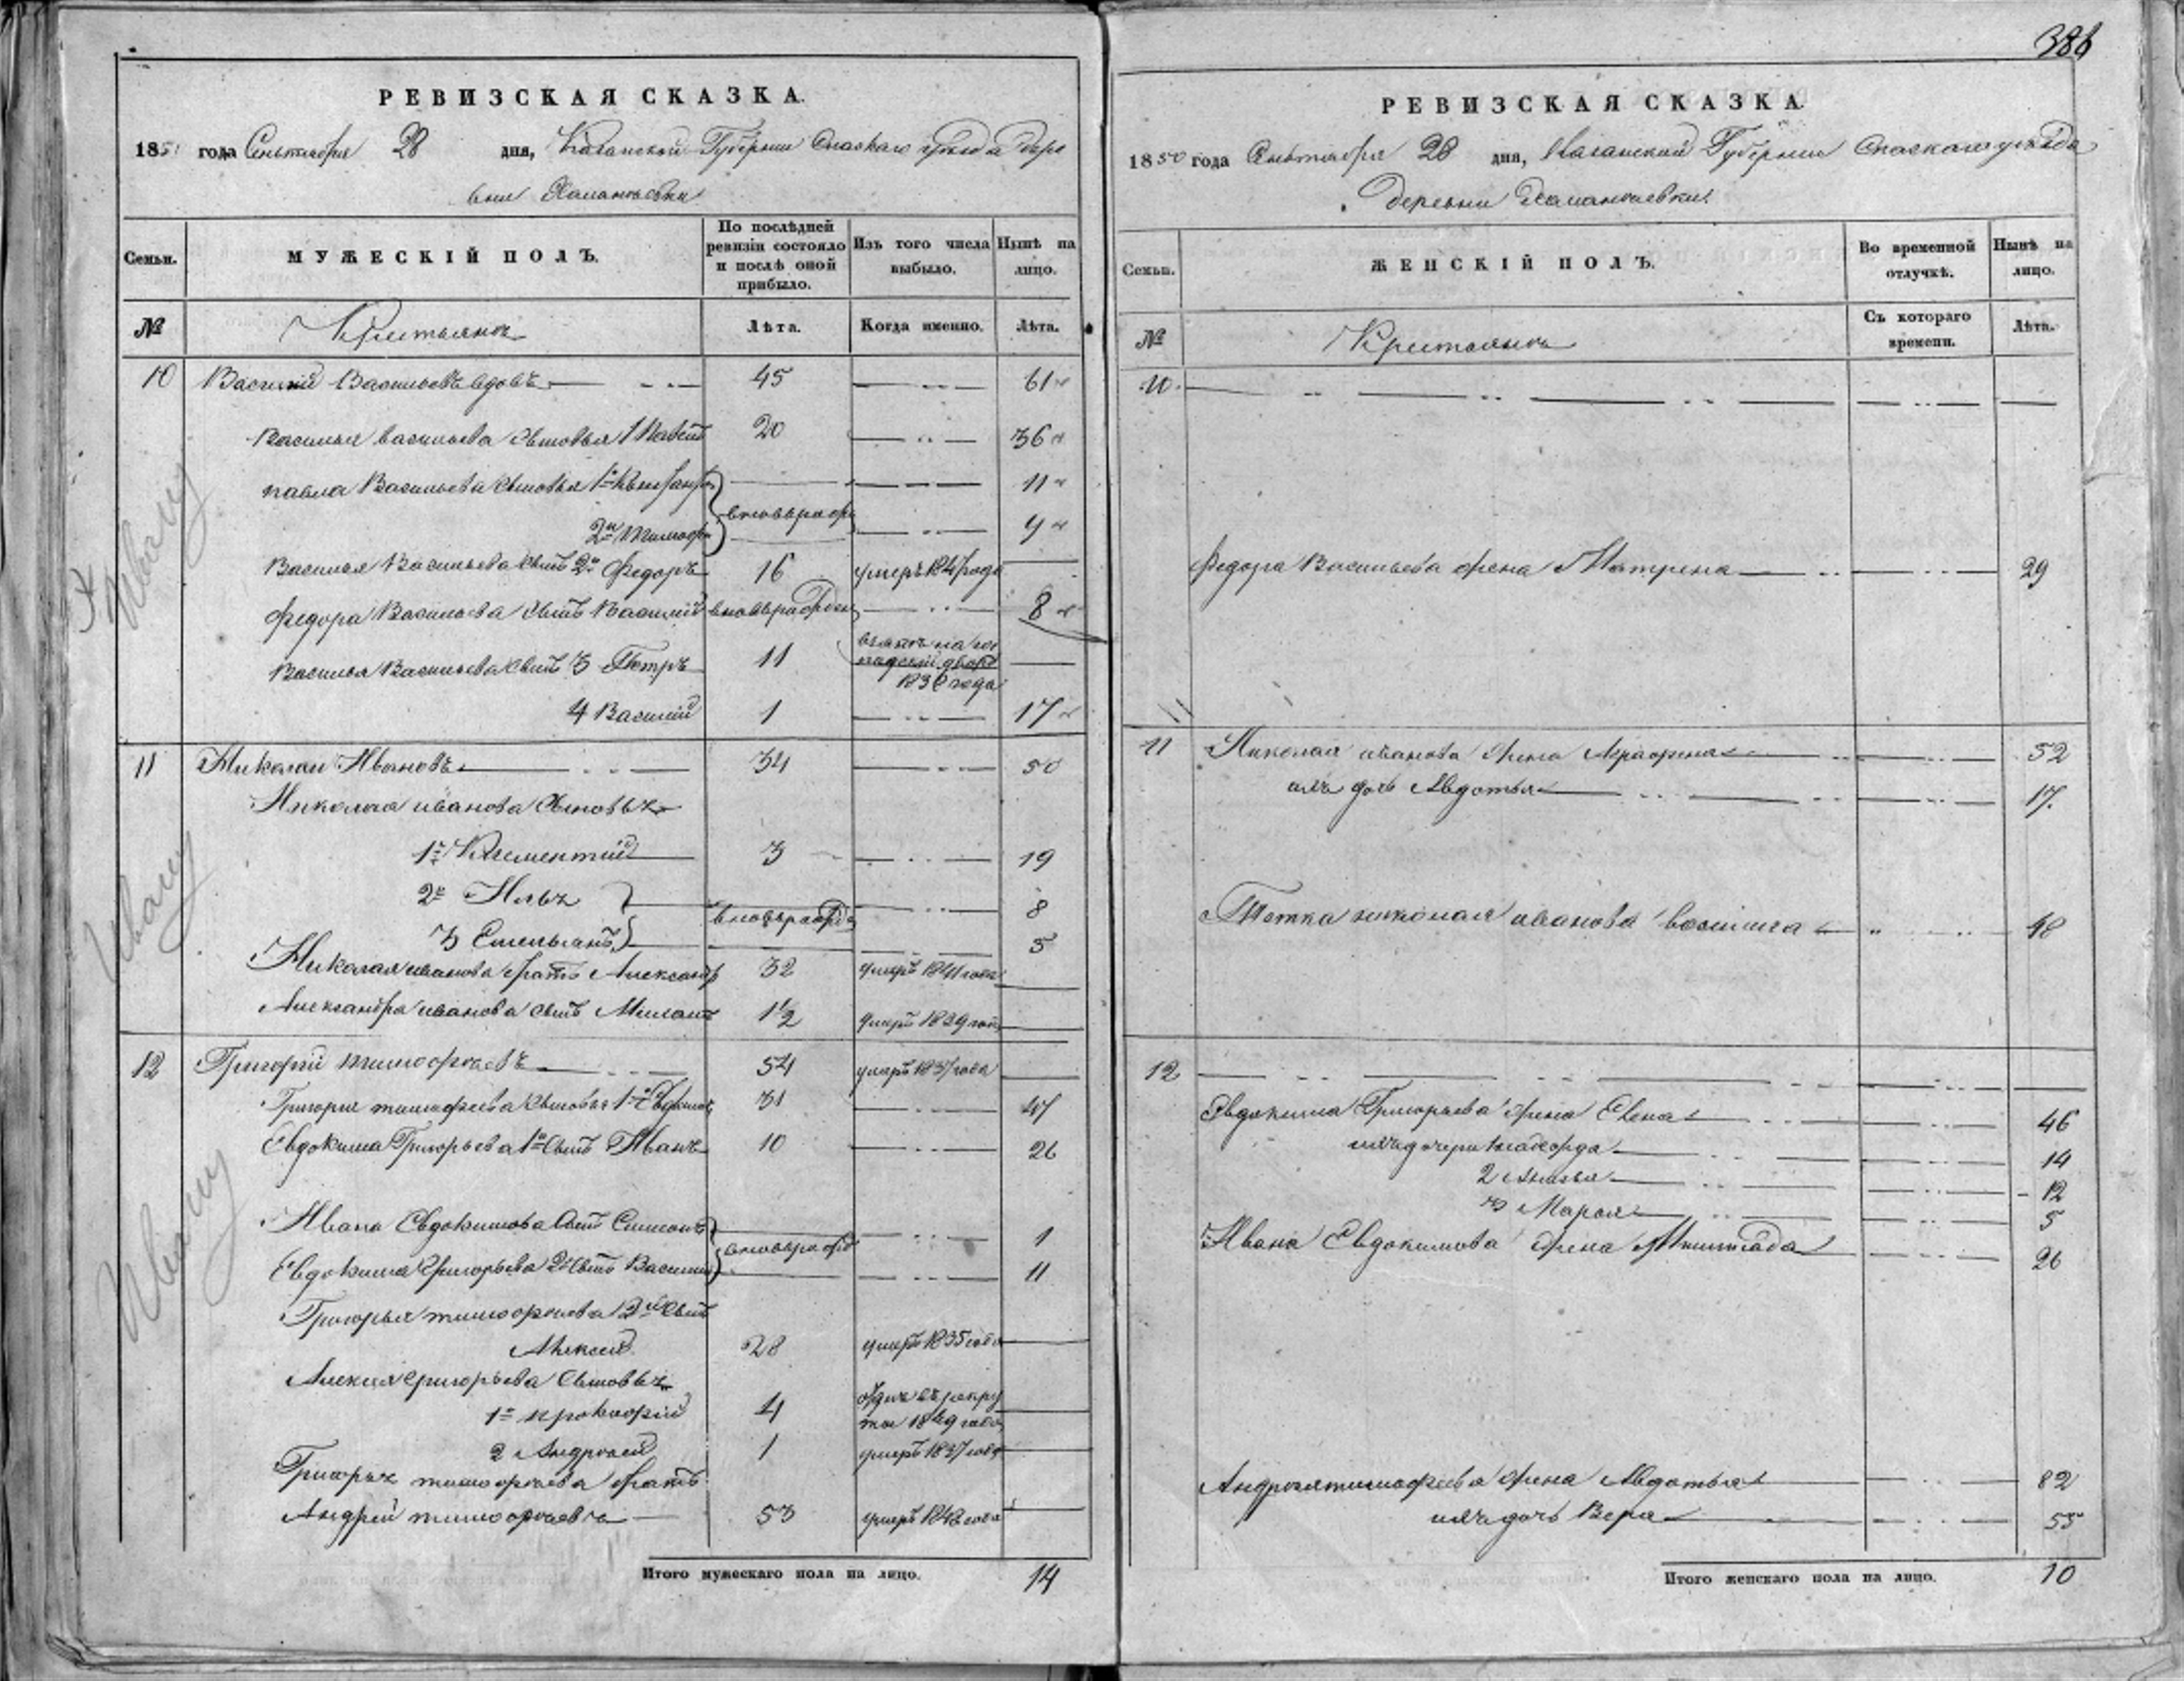 386
РЕВИЗСКАЯ СКАЗКА.
1850 года Сентября 28 дня, Казанской Губернии Спаскаго уѣзда дере
вни
Семьи.
МУЖЕСКІЙ ПОЛЪ.
По послѣдней ревизіи состояло и послѣ оной прибыло.
Изъ того числа выбыло.
Нынѣ на лицо.
№
Крестьянъ
Лѣта.
Когда именно.
Лѣта.
10 Василий Васильевъ вдовъ 45 61
Василья васильева сыновья 1 20 36
павла Васильева сыновья 1й 11
2й Тимофей вновьрожд 9
Василья Васильева сынъ 2й Федоръ 16 умеръ 1847 года
Федора Васильева сынъ Василий вновьрожден 8
Василья Васильева сынъ 3 Петръ 11 двор
183 года
4 Василий 1 17
11 Николай Ивановъ 34 50
Николая иванова сыновья
1й Клементий 3 19
2й 8
3 Емельянъ вновьрожд 5
Николая иванова братъ Александр 32 умеръ 1841 года
Александра иванова сынъ 1½ умеръ 1839 года
12 Григорий тимофеевъ 54 умеръ 1837 года
Григорья тимофеева сыновья 1й Евдоким 31 47
Евдокима Григорьева 1й сынъ Иванъ 10 26
Ивана Евдокимова сынъ Симеонъ 1
вновьрожд
Евдокима Григорьева 2й сынъ Василий 11
Григорья тимофеева 2й сынъ
Алексей 28 умеръ 1835 года
Алексея григорьева сыновья
1й 4 отдан въ рекру
ты 1849 года
2 Андрей 1 умеръ 1837 года
Григорья тимофеева братъ
Андрей тимофеевъ 53 умеръ 1848 года
Итого мужескаго пола на лицо. 14
РЕВИЗСКАЯ СКАЗКА.
1850 года Сентября 28 дня, Казанской Губернии Спаскаго уѣзда
деревни
Семьи.
ЖЕНСКІЙ ПОЛЪ.
Во временной отлучкѣ.
Нынѣ на лицо.
№
Крестьянъ
Съ котораго времени.
Лѣта.
10
Федора Васильева жена Матрена 29
11 Николая иванова жена Аграфена 52
ихъ дочь Авдотья 17
Тетка николая иванова 48
12
Евдокима Григорьева жена Елена 46
ихъ дочери 14
2 12
3 Марья 5
Ивана Евдокимова жена 26
Андрея тимофеева жена Авдотья 82
ихъ дочь Вера 55
Итого женскаго пола на лицо. 10